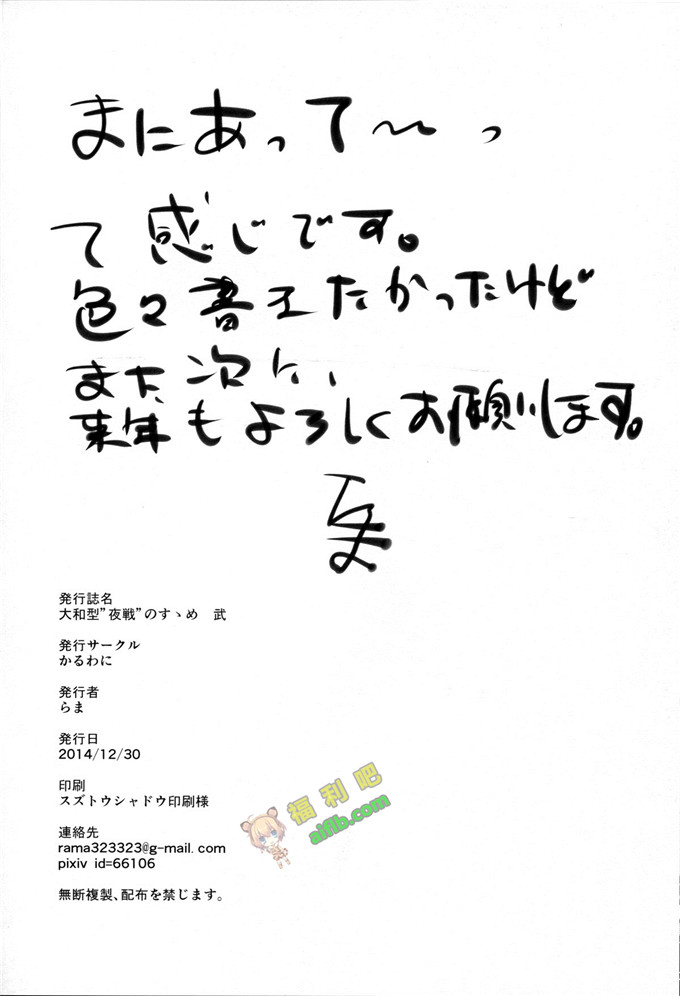 まにあって〜っ
て感じです。
色々書きたかったけど
また次に、
来年もよろしくお願いします。
発行誌名
大和型”夜戦”のすゝめ　武
発行サークル
かるわに
発行者
らま
発行日
2014/12/30
印刷
スズトウシャドウ印刷様
連絡先
rama323323@g-mail.com
pixiv id=66106
無断複製、配布を禁じます。
福利吧
aiflb.com